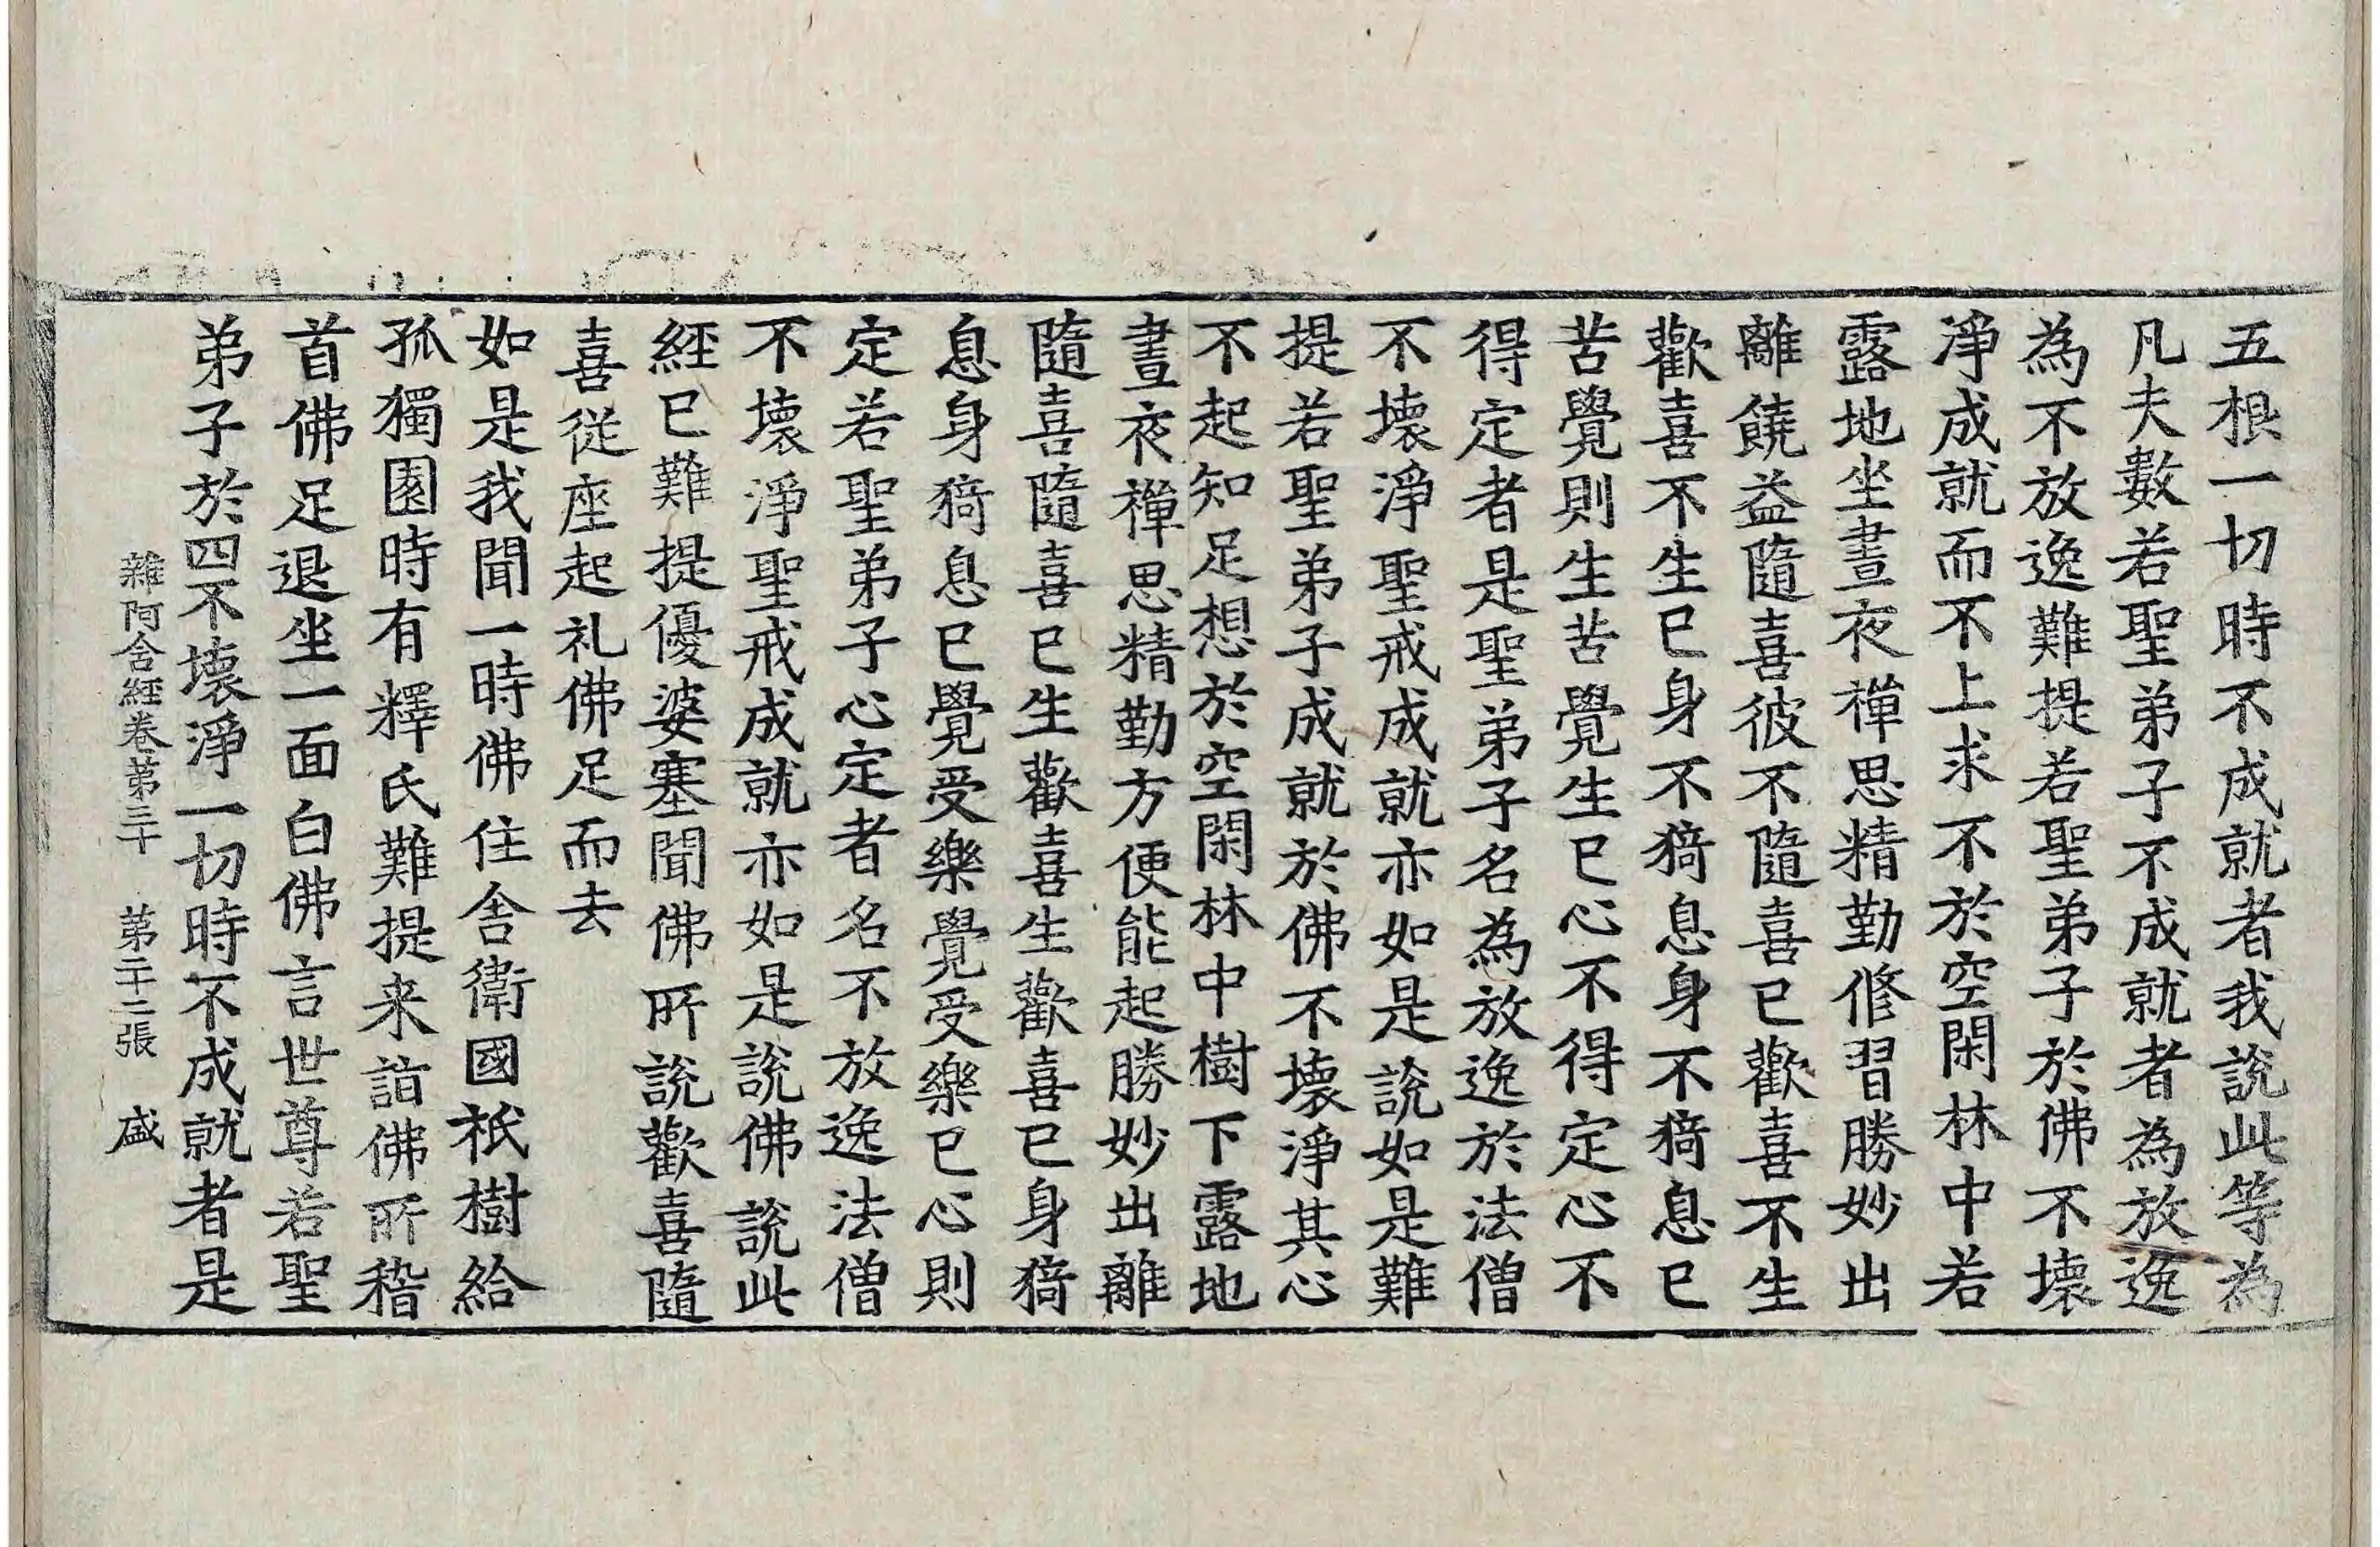 五根一切時不成就者我說此等為
凡夫數若聖弟子不成就者為放逸
為不放逸難提若聖弟子於佛不壞
淨成就而不上求不於空閑林中若
露地坐晝夜禪思精勤修習勝妙出
離饒益隨喜彼不隨喜已歡喜不生
歡喜不生已身不猗息身不猗息已
苦覺則生苦覺生已心不得定心不
得定者是聖弟子名為放逸於法僧
不壞淨聖戒成就亦如是說如是難
提若聖弟子成就於佛不壞淨其心
不起知足想於空閑林中樹下露地
晝夜禪思精勤方便能起勝妙出離
隨喜隨喜已生歡喜生歡喜已身猗
息身猗息已覺受樂覺受樂已心則
定若聖弟子心定者名不放逸法僧
不壞淨聖戒成就亦如是說佛說此
經已難提優婆塞聞佛所說歡喜隨
喜從座起礼佛足而去
如是我聞一時佛住舍衛國祇樹給
孤獨園時有釋氏難提来詣佛所稽
首佛足退坐一面白佛言世尊若聖
弟子於四不壞淨一切時不成就者是
雜阿含經卷第三十 第二十二張 盛